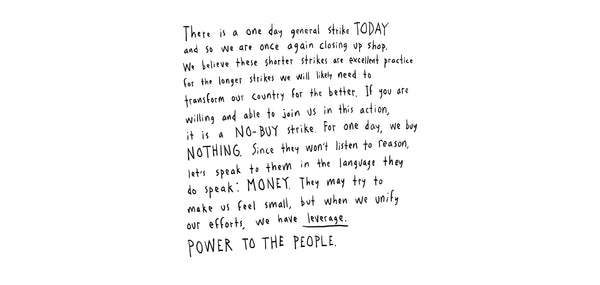 There is a one day general strike TODAY
and so we are once again closing up shop.
We believe these shorter strikes are excellent practice
for the longer strikes we will likely need to
transform our country for the better. If you are
willing and able to join us in this action,
it is a NO-BUY strike. For one day, we buy
NOTHING. Since they won't listen to reason,
let's speak to them in the language they
do speak: MONEY. They may try to
make us feel small, but when we unify
our efforts, we have leverage.
POWER TO THE PEOPLE.